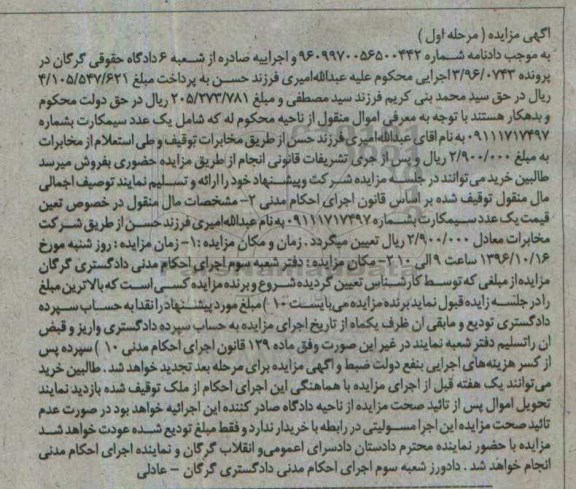 آگهی مزایده ( مرحله اول )
به موجب دادنامه شماره ۹۶۰۹۹۷۰۰۵۶۵۰۰۴۴۲ و اجراییه صادره از شعبه ۶ دادگاه حقوقی گرگان در
پرونده ۳/۹۶/۰۷۴۳ اجرایی محکوم علیه عبدالله امیری فرزند حسن به پرداخت مبلغ ۴/۱۰۵/۵۴۷/۶۲۱
ریال در حق سید محمد بنی کریم فرزند سید مصطفی و مبلغ ۲۰۵/۲۷۳/۷۸۱ ریال در حق دولت محکوم
و بدهکار هستند با توجه به معرفی اموال منقول از ناحیه محکوم له که شامل یک عدد سیمکارت بشماره
۰۹۱۱۱۷۱۷۴۹۷ به نام اقای عبدالله امیری فرزند حسن از طریق مخابرات توقیف و طی استعلام از مخابرات
به مبلغ ۲/۹۰۰/۰۰۰ ریال و پس از جری تشریفات قانونی انجام از طریق مزایده حضوری بفروش میرسد
طالبین خرید می توانند در جلسه مزایده شرکت و پیشنهاد خود را ارائه و تسلیم نمایند توصیف اجمالی
مال منقول توقیف شده بر اساس قانون اجرای احکام مدنی ۲- مشخصات مال منقول در خصوص تعین
قیمت یک عدد سیمکارت بشماره ۰۹۱۱۱۷۱۷۴۹۷ به نام عبدالله امیری فرزند حسن از طریق شرکت
مخابرات معادل ۲/۹۰۰/۰۰۰ ریال تعیین میگردد . زمان و مکان مزایده : ۱- زمان مزایده : روز شنبه مورخ
۱۳۹۶/۱۰/۱۶ ساعت ۹ الی ۱۰ ۲- مکان مزایده : دفتر شعبه سوم اجرای احکام مدنی دادگستری گرگان
مزایده از مبلغی که توسط کارشناس تعیین گردیده شروع و برنده مزایده کسی است که بالاترین مبلغ
را در جلسه زایده قبول نماید برنده مزایده می بایست ۱۰ ) مبلغ مورد پیشنهاد را نقدا به حساب سپرده
دادگستری تودیع و مابقی ان ظرف یکماه از تاریخ اجرای مزایده به حساب سپرده دادگستری واریز و قبض
ان را تسلیم دفتر شعبه نمایند در غیر این صورت وفق ماده ۱۲۹ قانون اجرای احکام مدنی ۱۰ ) سپرده پس
از کسر هزینه های اجرایی بنفع دولت ضبط و اگهی مزایده برای مرحله بعد تجدید خواهد شد . طالبین خرید
می توانند یک هفته قبل از اجرای مزایده با هماهنگی این اجرای احکام از ملک توقیف شده بازدید نمایند
تحویل اموال پس از تائید صحت مزایده از ناحیه دادگاه صادر کننده این اجرائیه خواهد بود در صورت عدم
تائید صحت مزایده این اجرا مسولیتی در رابطه با خریدار ندارد و فقط مبلغ تودیع شده عودت خواهد شد
مزایده با حضور نماینده محترم دادستان دادسرای اعمومی و انقلاب گرگان و نماینده اجرای احکام مدنی
انجام خواهد شد . دادورز شعبه سوم اجرای احکام مدنی دادگستری گرگان – عادلی